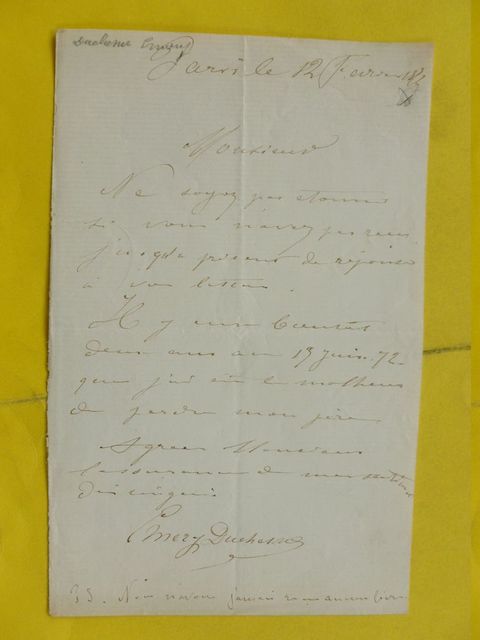 Duchesne Emery
Paris le 12 Fevrier 187
Monsieur
Ne soyez pas étonné
si vous n'avez pas reçu
jusqu'à présent de réponse
à vos lettres.
Il y aura bientôt
deux ans au 13 juin 72
que j'ai eu le malheur
de perdre mon père
Agréez Monsieur
l'assurance de mes sentiments
distingués
Emery Duchesne
Nous n'avons jamais